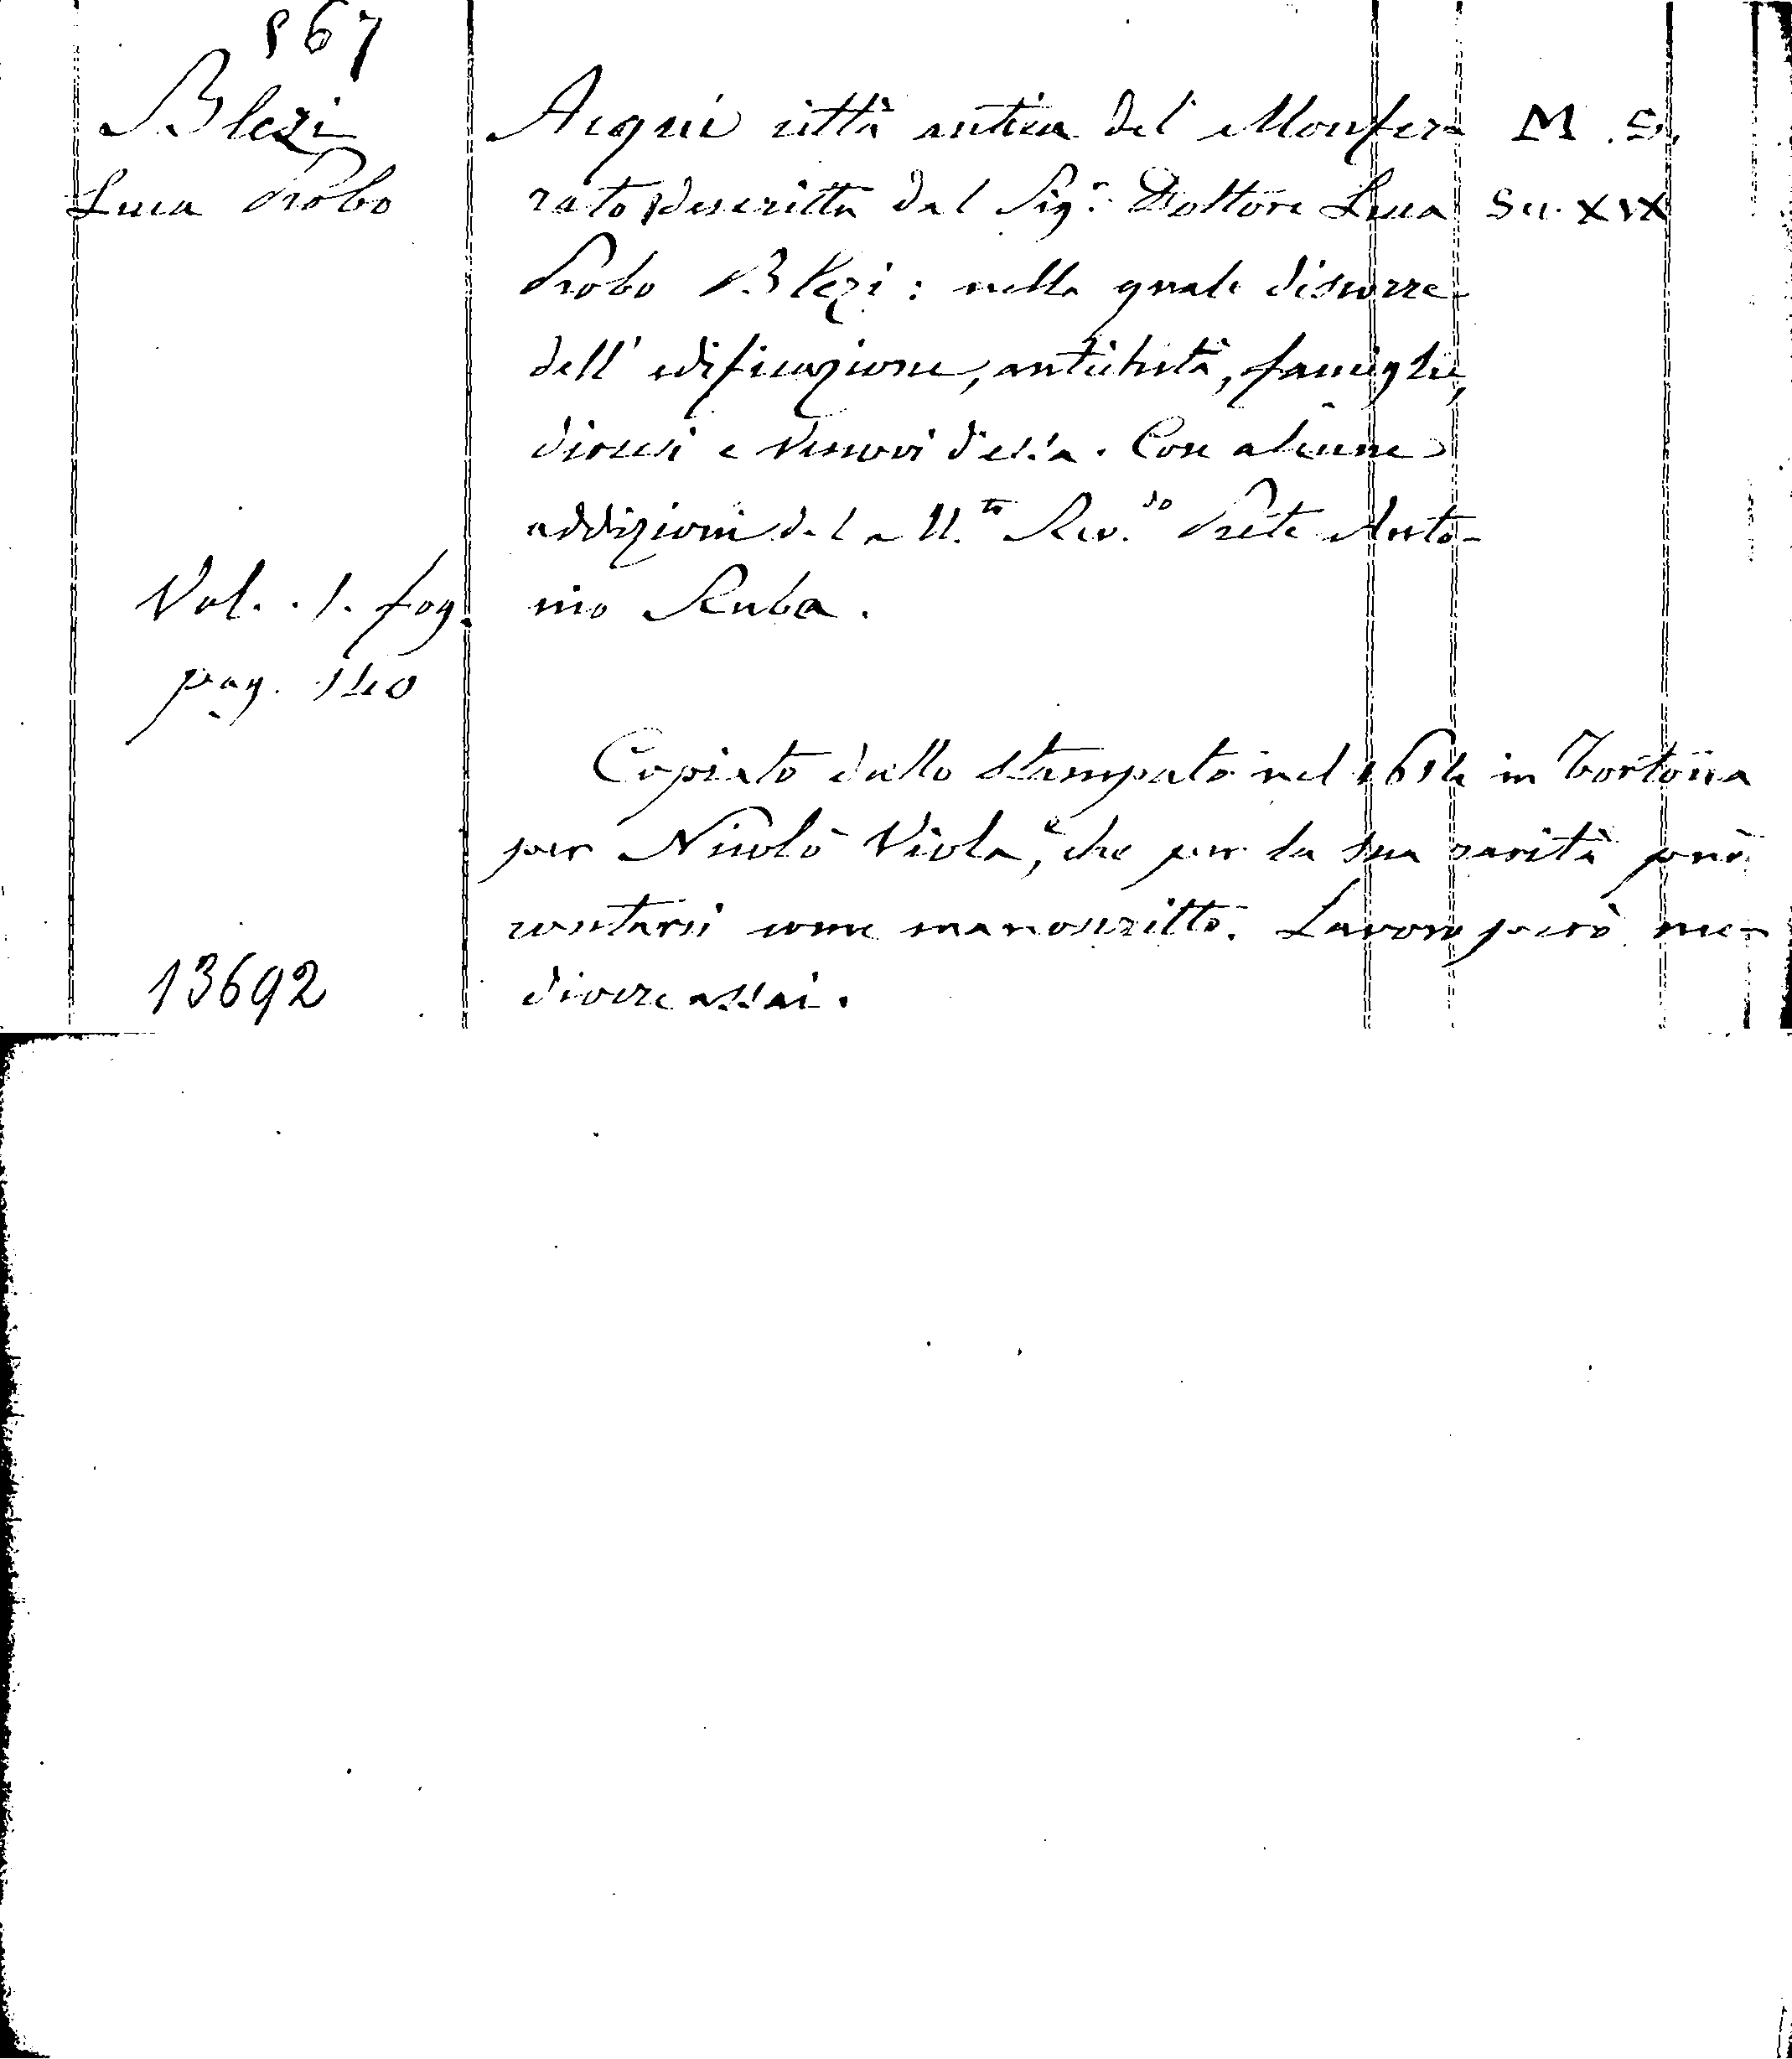 867
Blezi
Luca Probo
Acqui città antica del Monfer-
rato descritta dal Sig.r Dottore Luca
Probo Blezi: nella quale discorre
dell' edificazione, antichità, famiglie,
diocesi e vescovi d'essa. Con alcune
addizioni del M.to Rev.do Prete Anto-
nio Ruba.
M. S.
Sec. XIX
Vol. 1. fog.
pag. 140
Copiato dallo stampato nel 1614 in Tortona
per Nicolò Viola, e che per la sua rarità può
contarsi come manoscritto. Lavoro però me-
diocre assai.
13692